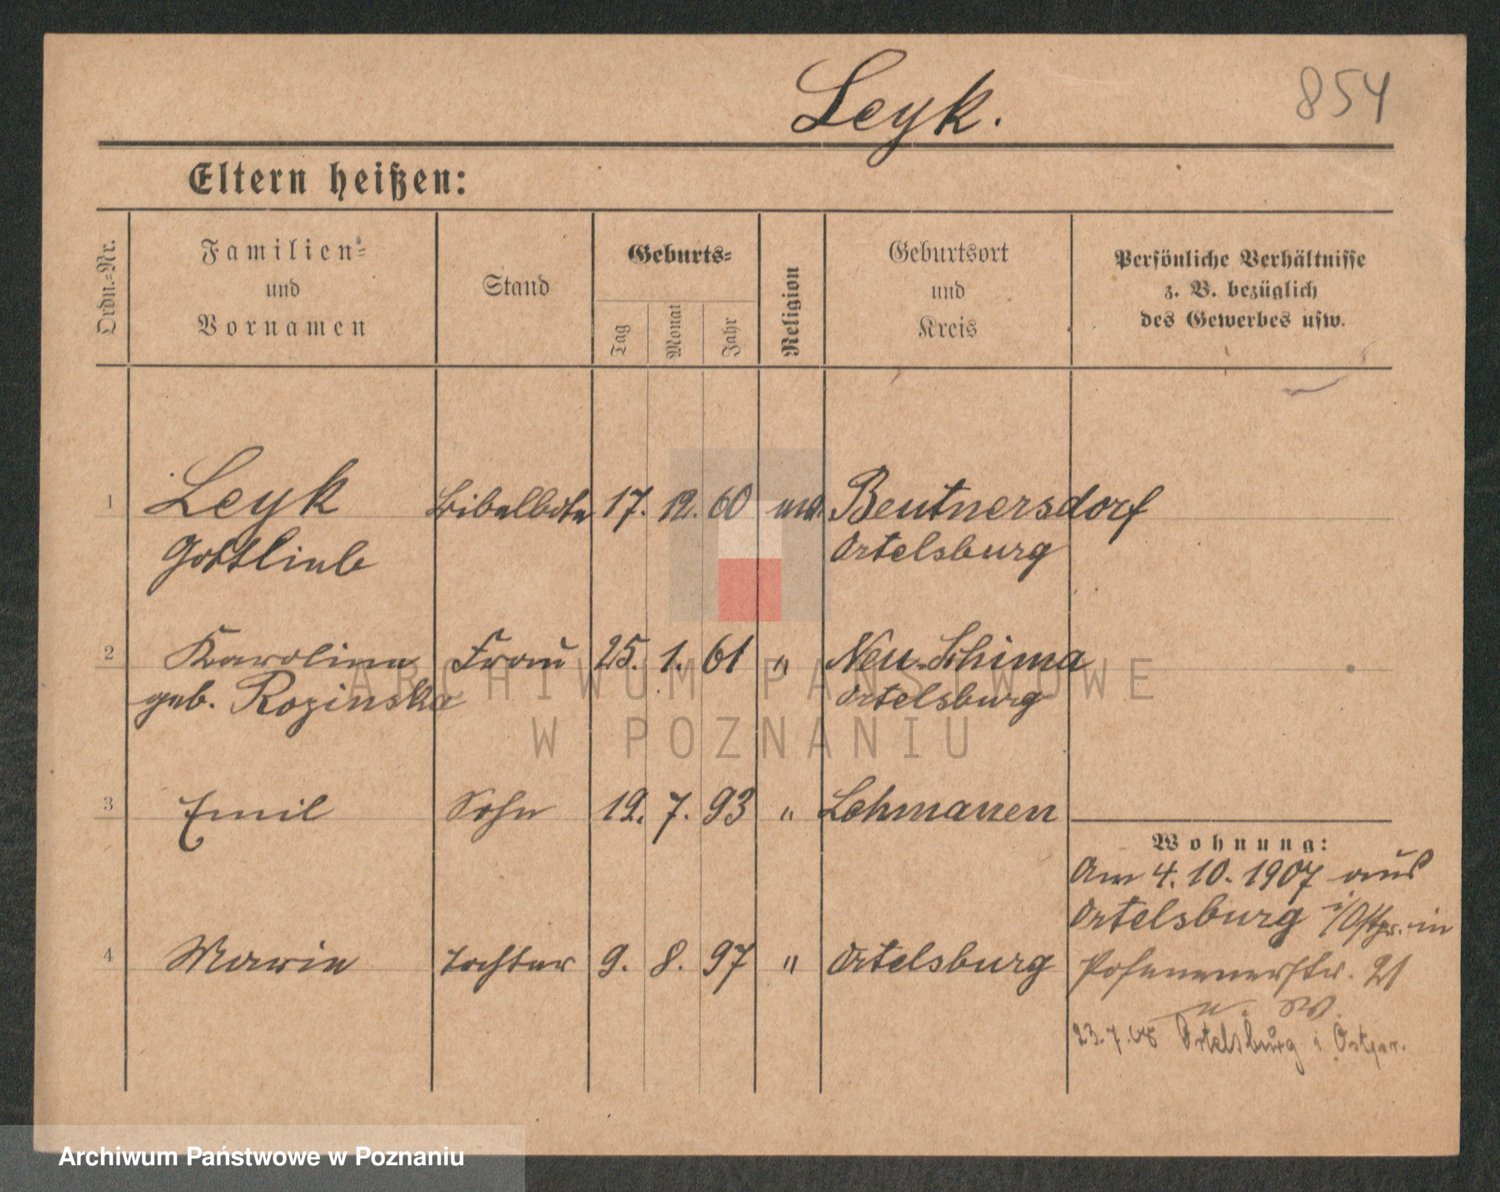 Leyk.
854
Eltern heißen:
Ordn.-Nr.
Familien-
und
Vornamen
Stand
Geburts-
Tag
Monat
Jahr
Religion
Geburtsort
und
Kreis
Persönliche Verhältnisse
z. B. bezüglich
des Gewerbes usw.
1 Leyk Bibelbote 17. 12. 60 Beutnersdorf
Gottlieb Ortelsburg
2 Karoline Frau 25. 1. 61 " Neu-Schima
geb. Rozinska Ortelsburg
ARCHIWUM PAŃSTWOWE
W POZNANIU
3 Emil Sohn 19. 7. 93 " Lehmanen
Wohnung:
Am 4. 10. 1907 aus
Ortelsburg i/Ostpr. in
4 Marie Tochter 9. 8. 97 " Ortelsburg
Posenerstr. 21
23.7.08 Ortelsburg i Ostpr.
Archiwum Państwowe w Poznaniu